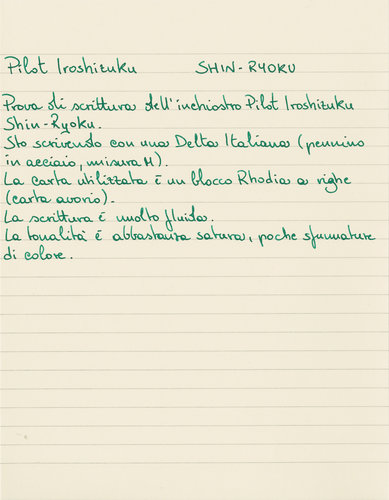 Pilot Iroshizuku SHIN-RYOKU
Prova di scrittura dell'inchiostro Pilot Iroshizuku
Shin-Ryoku.
Sto scrivendo con una Delta Italiana (pennino
in acciaio, misura M).
La carta utilizzata è un blocco Rhodia a righe
(carta avorio).
La scrittura è molto fluida.
La tonalità è abbastanza satura, poche sfumature
di colore.